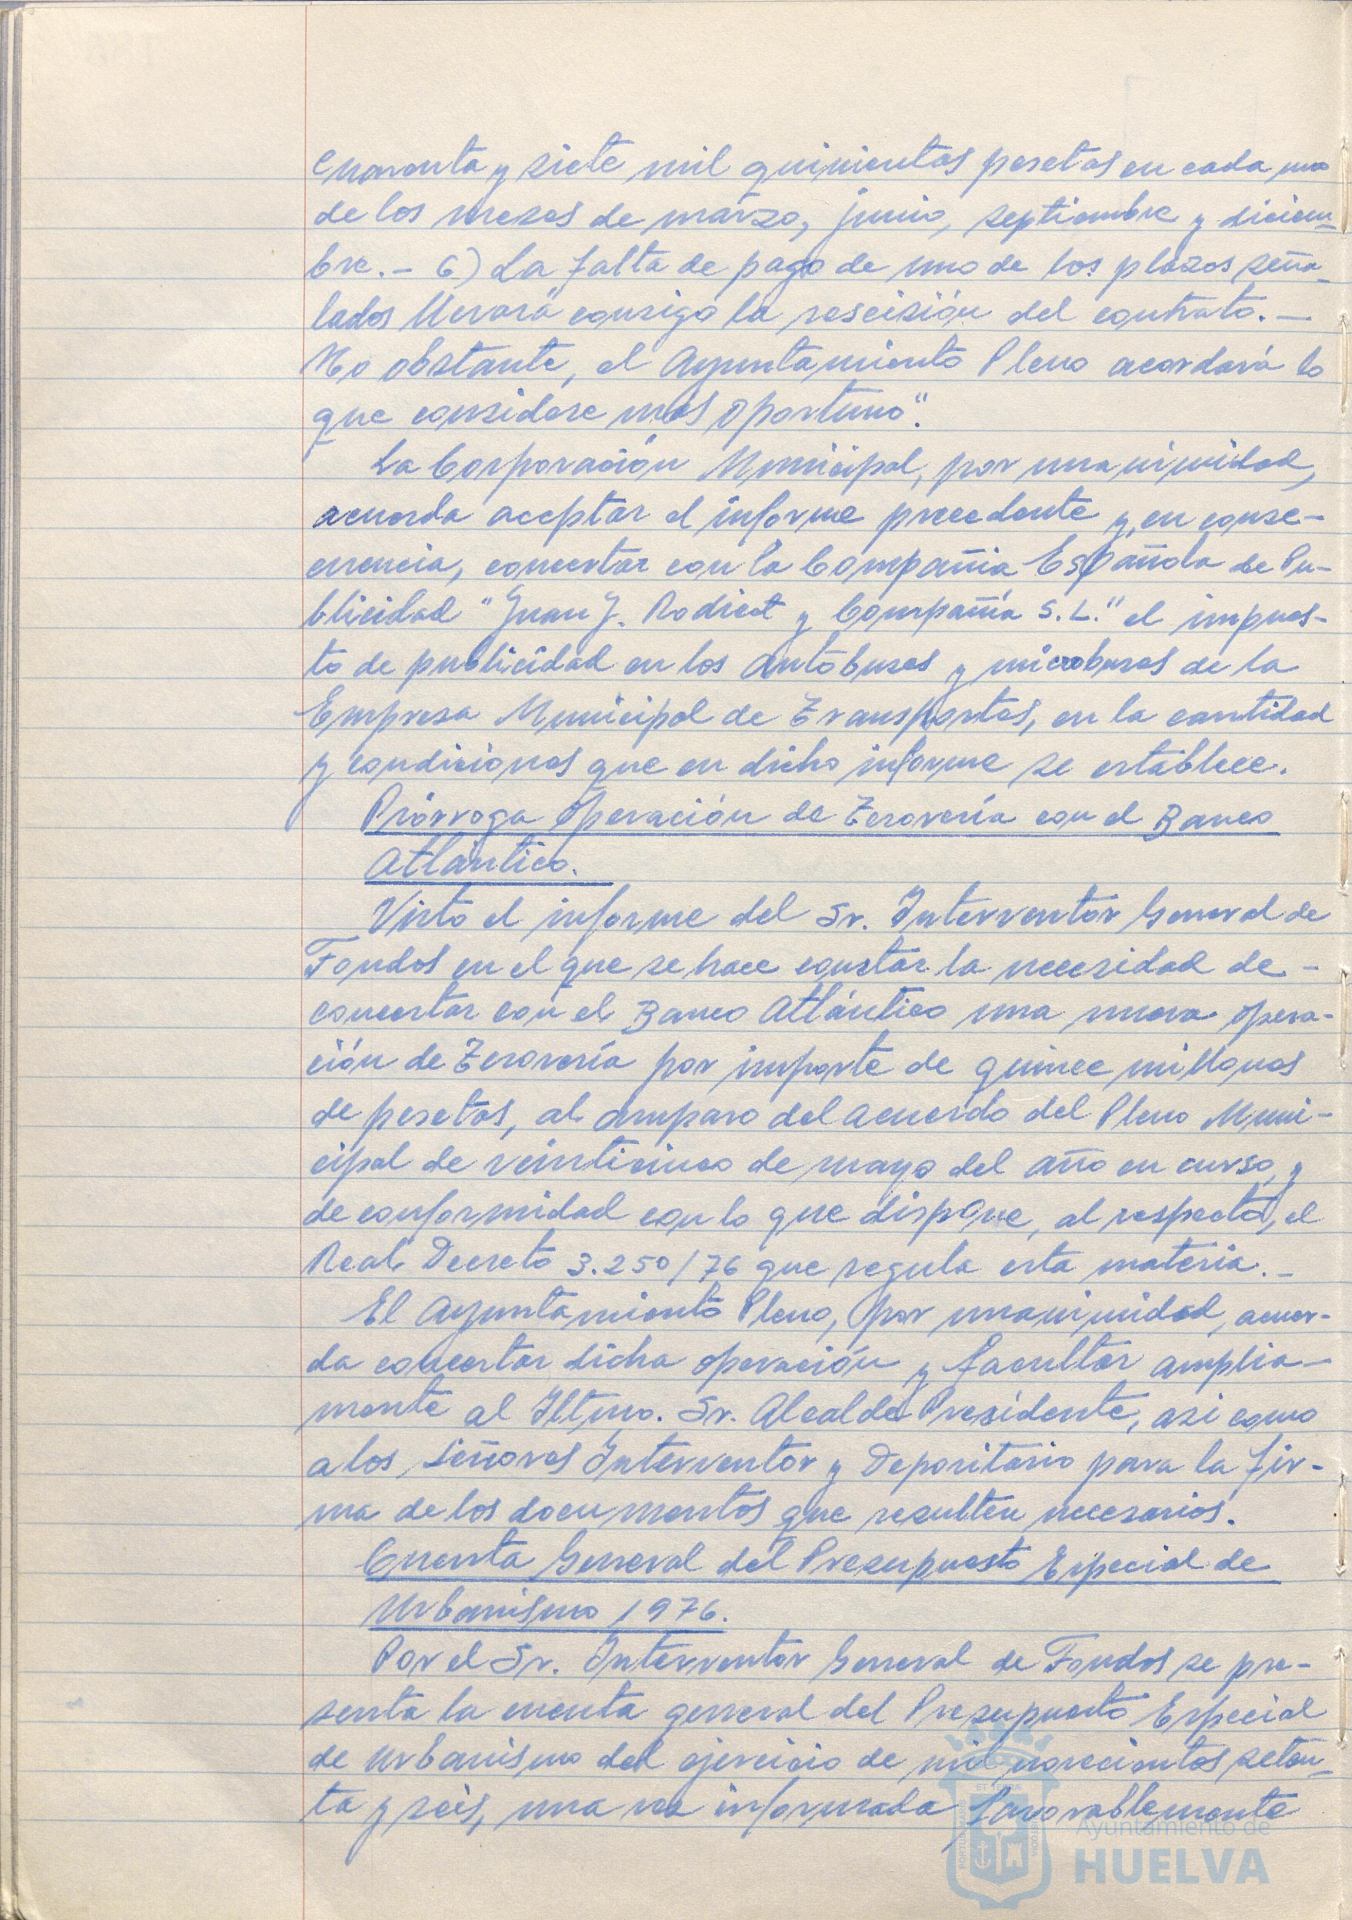 cuarenta y siete mil quinientas pesetas en cada uno
de los meses de marzo, junio, septiembre y diciem-
bre.- 6) La falta de pago de uno de los plazos seña-
lados llevará consigo la rescisión del contrato.-
No obstante, el Ayuntamiento Pleno acordará lo
que considere mas oportuno".
La Corporación Municipal, por unanimidad,
acuerda aceptar el informe precedente y, en conse-
cuencia, concertar con la Compañia Española de Pu-
blicidad "Juan J. Rodicot y Compañía S.L." el impues-
to de publicidad en los autobuses y microbuses de la
Empresa Municipal de Transportes, en la cantidad
y condiciones que en dicho informe se establece.
Prórroga Operación de Tesorería con el Banco
Atlántico.
Visto el informe del Sr. Interventor General de
Fondos en el que se hace constar la necesidad de-
concertar con el Banco Atlántico una nueva opera-
ción de Tesorería por importe de quince millones
de pesetas, al amparo del acuerdo del Pleno Muni-
cipal de veinticinco de mayo del año en curso, y
de conformidad con lo que dispone, al respecto, el
Real Decreto 3.250/76 que regula esta materia.-
El Ayuntamiento Pleno, por unanimidad, acuer-
da concertar dicha operación y facultar amplia-
mente al Iltmo. Sr. Alcalde Presidente, asi como
a los señores Interventor y Depositario para la fir-
ma de los documentos que resulten necesarios.
Cuenta General del Presupuesto Especial de
Urbanismo 1976.
Por el Sr. Interventor General de Fondos se pre-
senta la cuenta general del Presupuesto Especial
de Urbanismo del ejercicio de mil novecientos seten-
ta y seis, una vez informada favorablemente
Ayuntamiento de
HUELVA